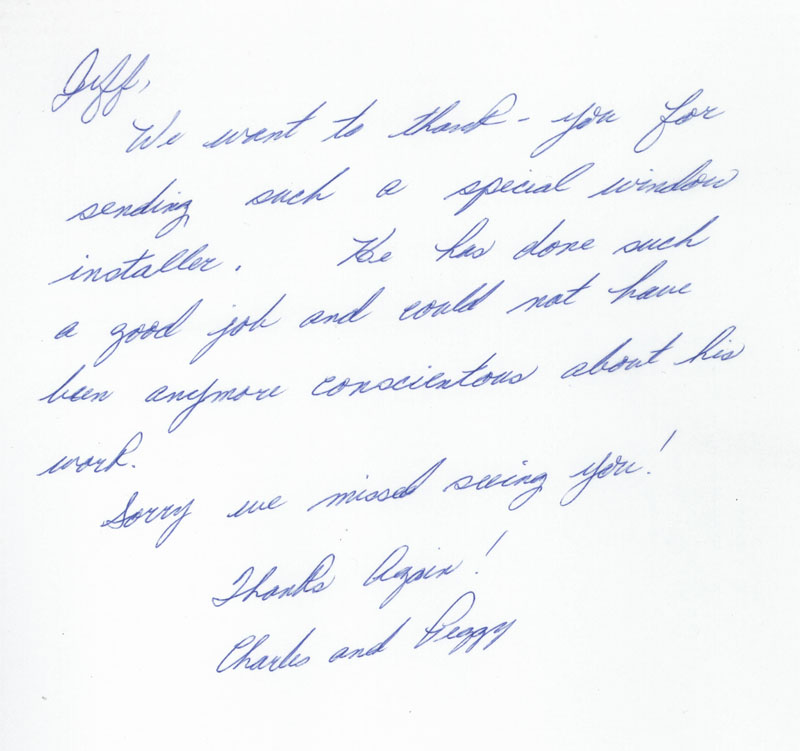 Jeff,
We want to thank-you for
sending such a special window
installer. He has done such
a good job and could not have
been anymore conscientous about his
work.
Sorry we missed seeing you!
Thanks Again!
Charles and Peggy